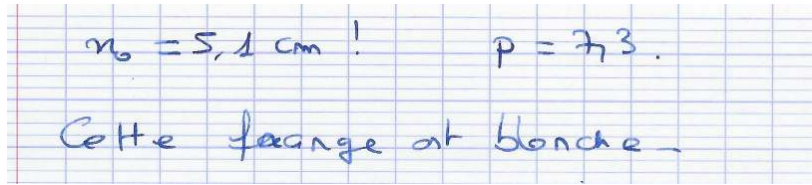 x₀ = 5,1 cm ! p = 7,3.
Cette frange est blanche.